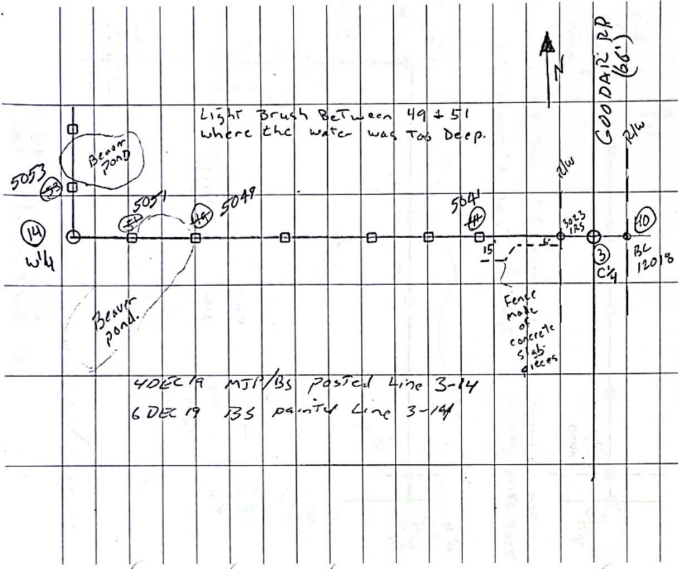 GOODAIR RD
(66')
N
Light Brush Between 49 & 51
where the water was Too Deep.
R/W
R/W
Beaver
Pond
5053
53
5051
51
5049
49
5041
41
14
W1/4
15'
6'
3023
IRS
3
C1/4
40
BL
12018
Beaver
pond.
Fence
made
of
concrete
slab
pieces
4 DEC 19 MJP/BS posted Line 3-14
6 DEC 19 BS painted Line 3-14